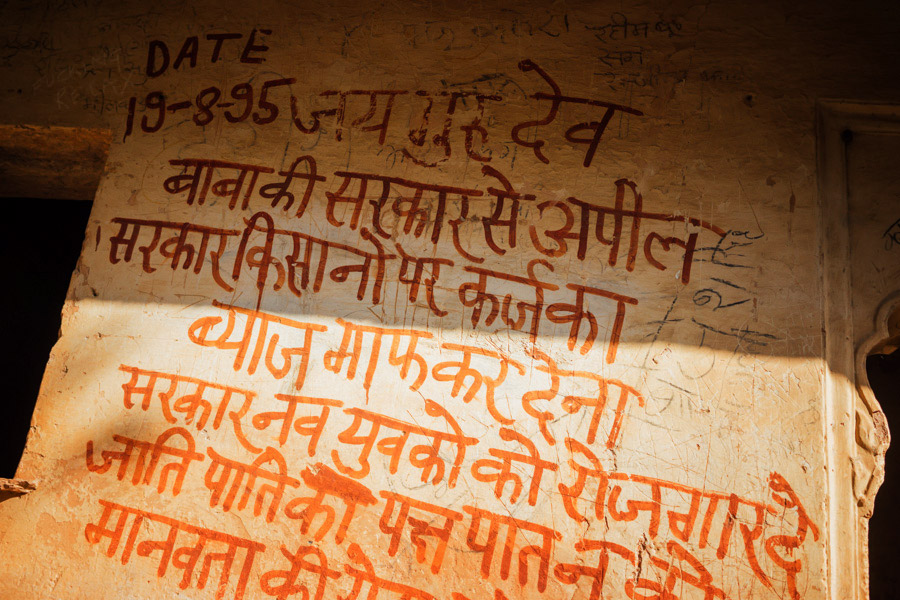 DATE
19-8-95 जय गुरु देव
बाबा की सरकार से अपील
सरकार किसानो पर कर्ज का
ब्याज माफ कर देना
सरकार नव युवको को रोजगार दे
जाति पाति का पक्ष पात न करे
मानवता की